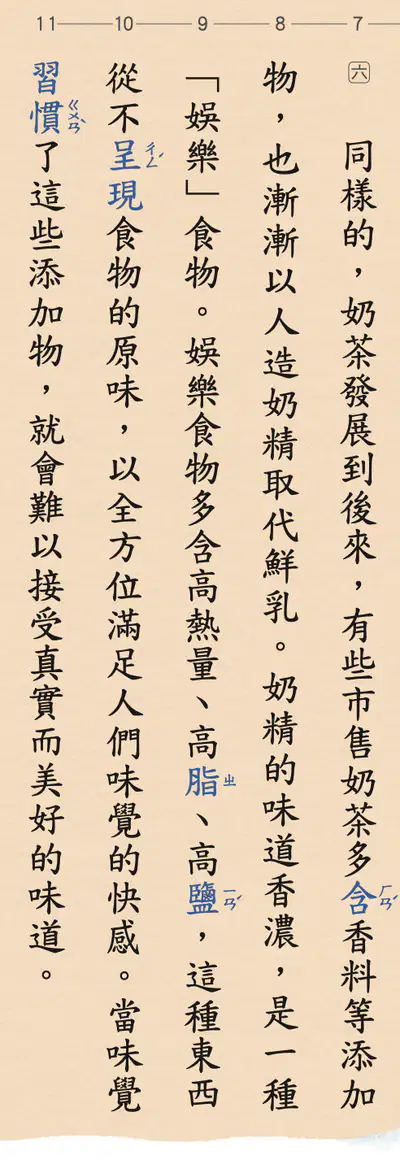 7 8 9 10 11
六
同樣的，奶茶發展到後來，有些市售奶茶多含ㄏㄢˊ香料等添加
物，也漸漸以人造奶精取代鮮乳。奶精的味道香濃，是一種
「娛樂」食物。娛樂食物多含高熱量、高脂ㄓ、高鹽ㄧㄢˊ，這種東西
從不呈ㄔㄥˊ現食物的原味，以全方位滿足人們味覺的快感。當味覺
習慣ㄍㄨㄢˋ了這些添加物，就會難以接受真實而美好的味道。